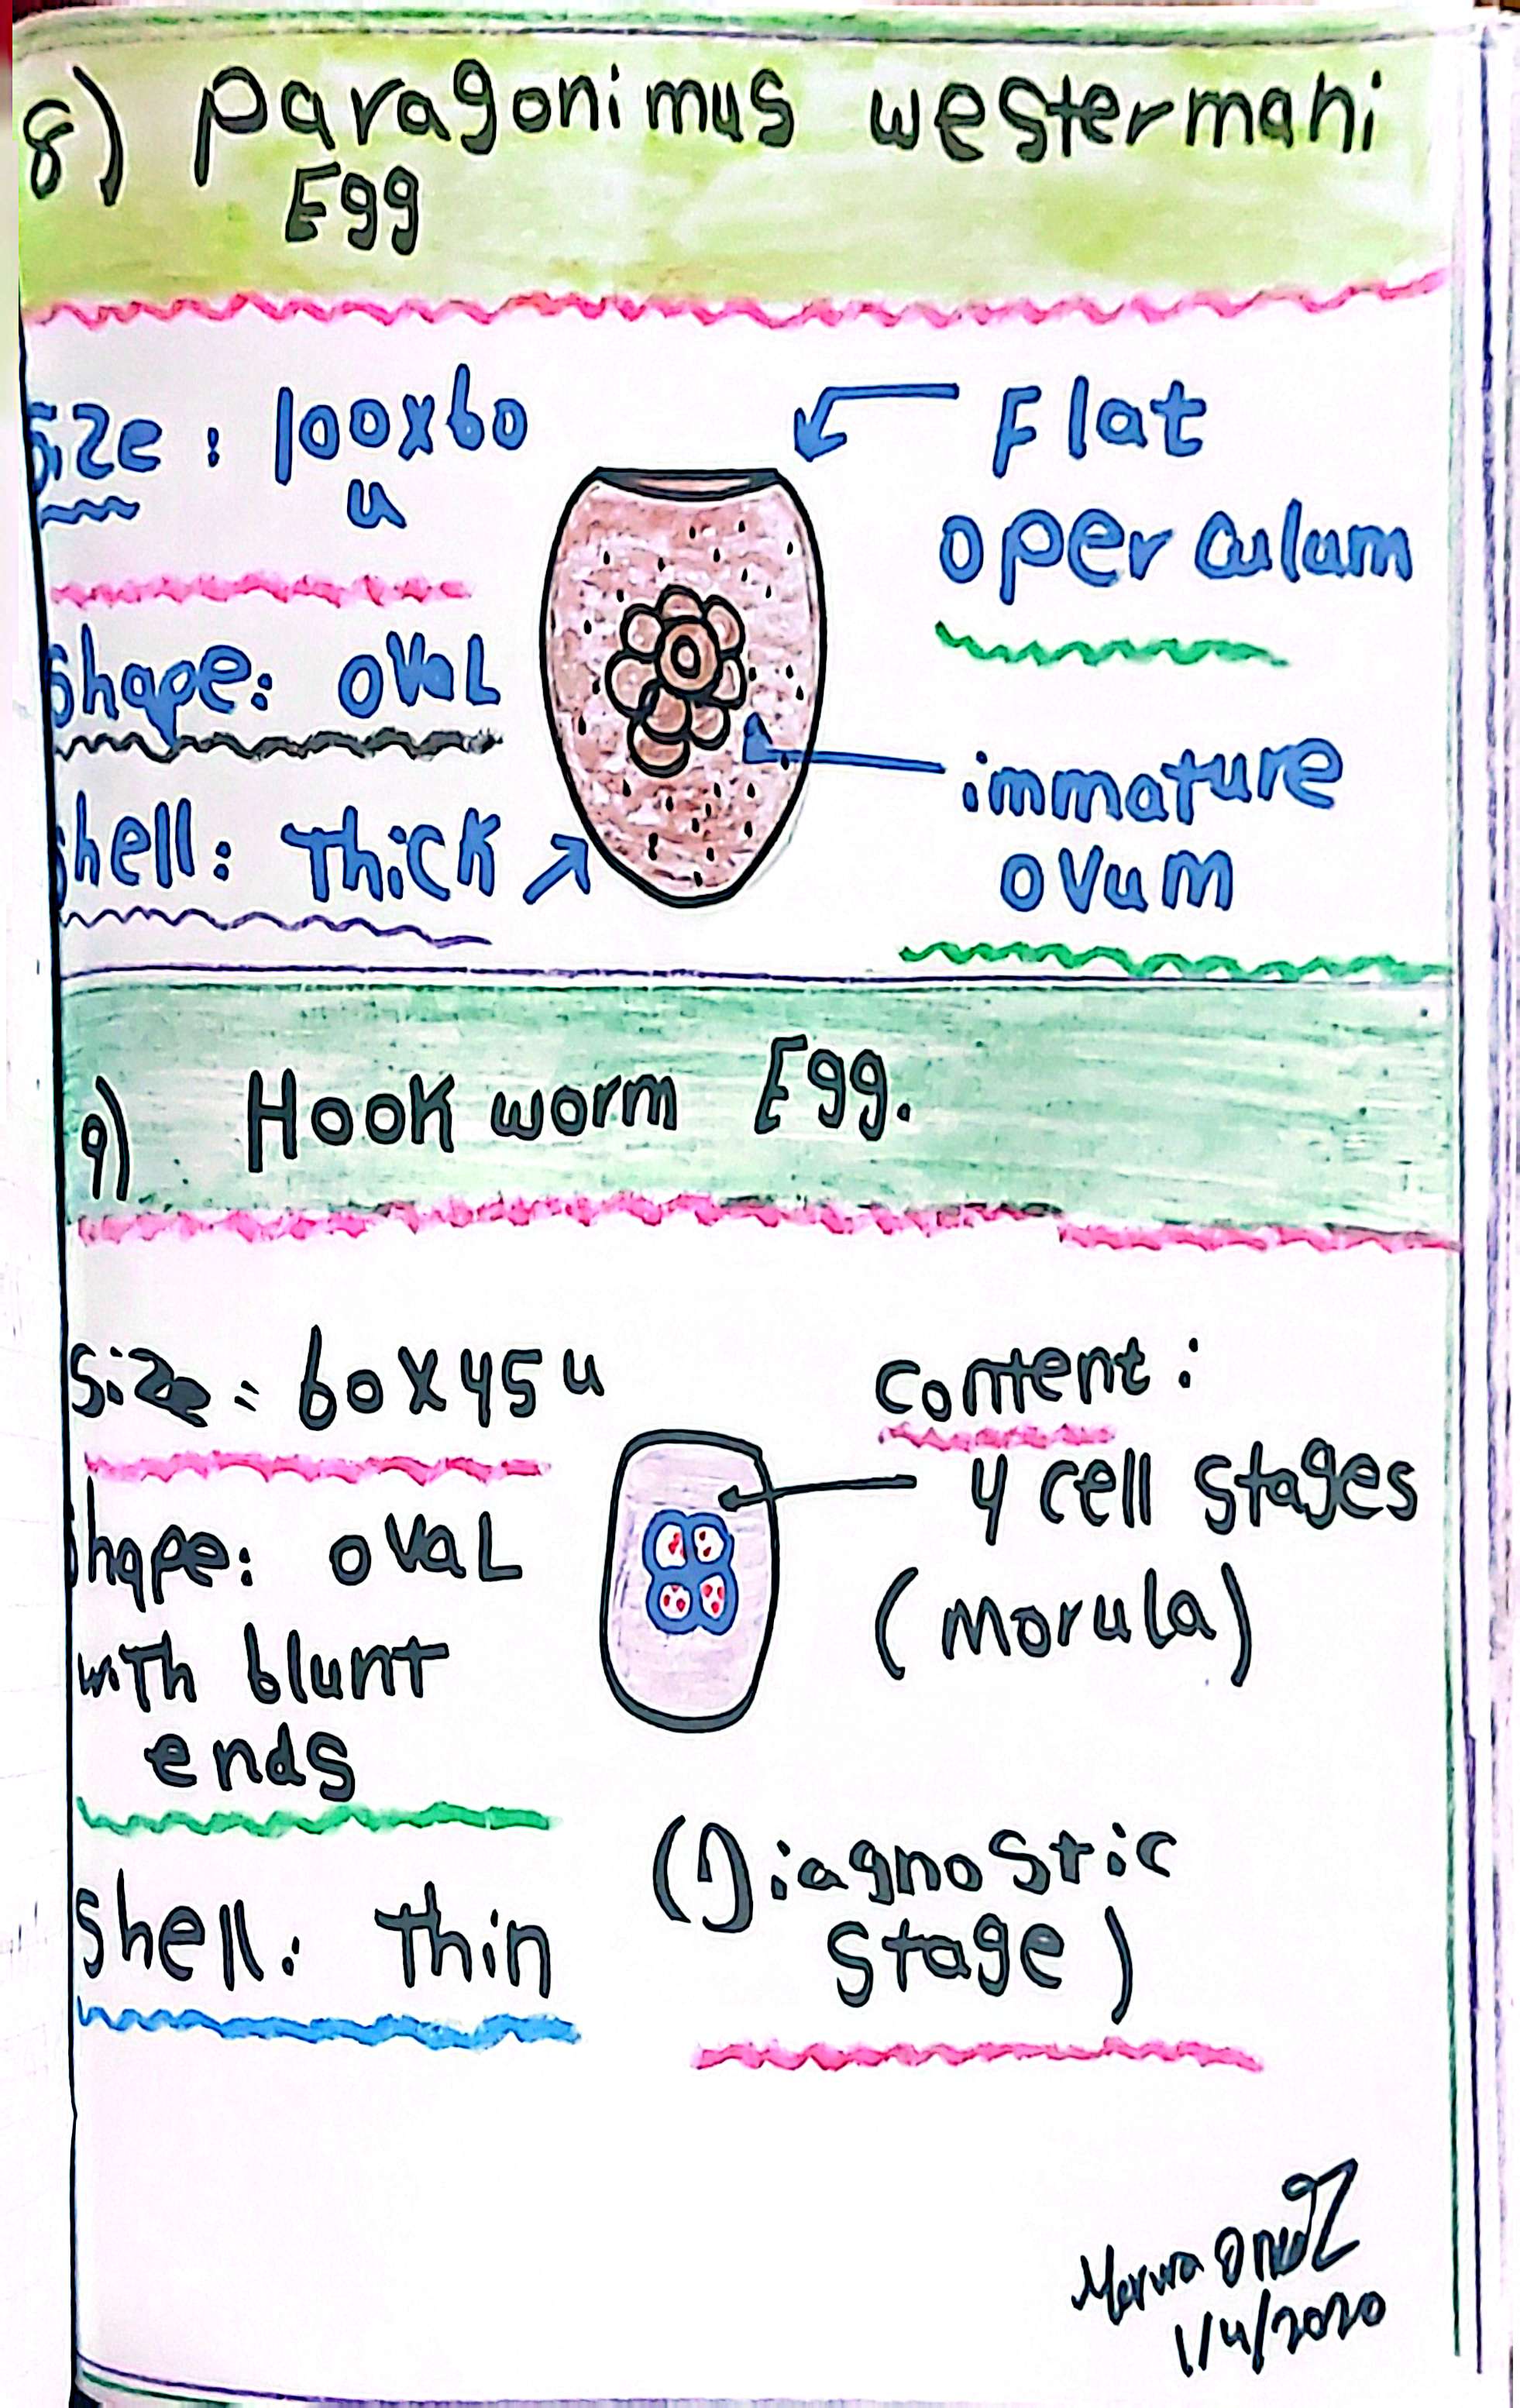 8) Paragonimus westermani
Egg
Size : 100x60
u
Flat
operculum
Shape: oval
immature
ovum
Shell: Thick
9) Hook worm Egg.
Size = 60x45 u
Content :
4 cell stages
(morula)
Shape: oval
with blunt
ends
(Diagnostic
stage)
Shell: Thin
Marwa
1/4/2020